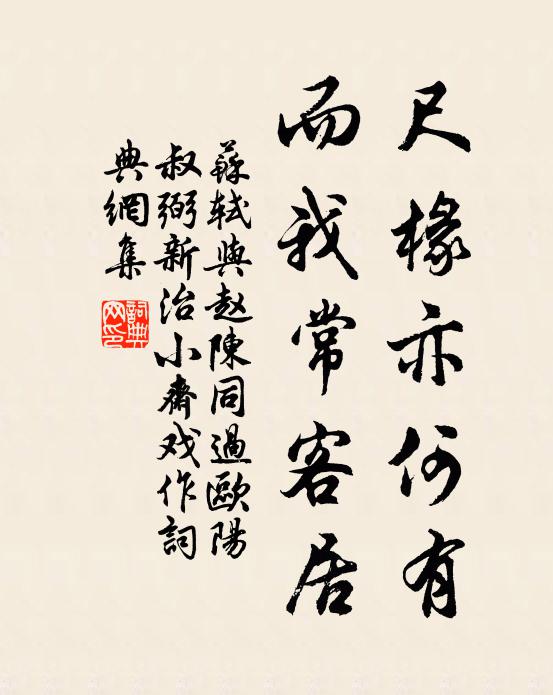 尺椽亦何有
而我常客居
蘇軾與赵陳同過歐陽
叔弼新治小齋戏作詞
典網集
詞典網印